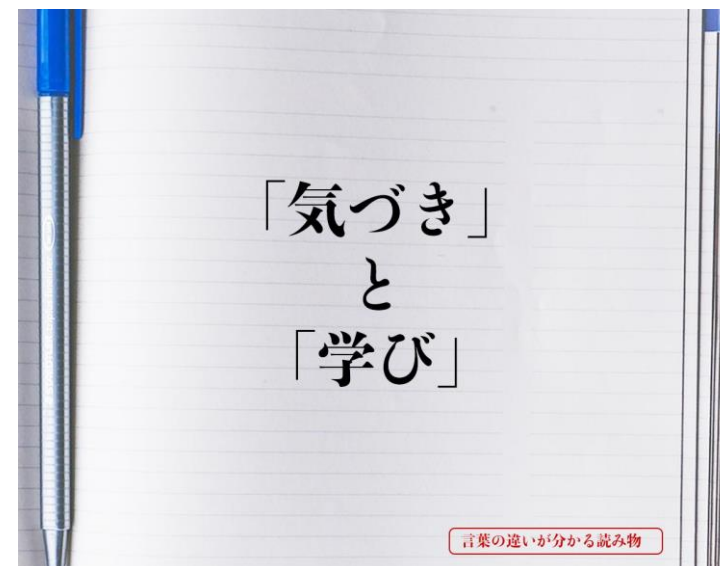 「気づき」
と
「学び」
言葉の違いが分かる読み物